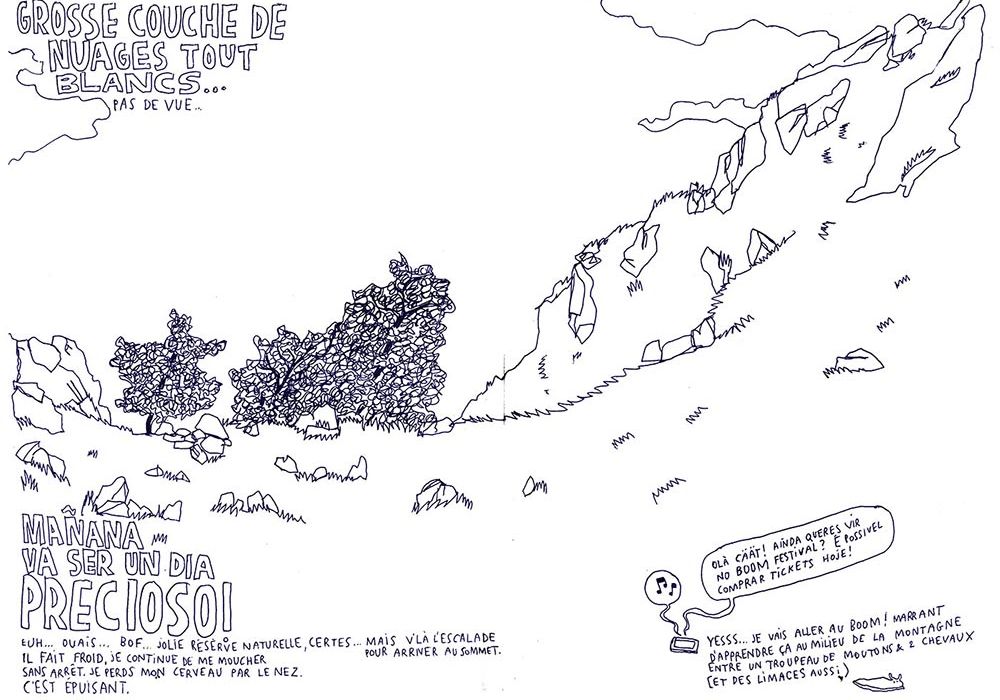 GROSSE COUCHE DE
NUAGES TOUT
BLANCS...
PAS DE VUE..
MAÑANA
VA SER UN DIA
PRECIOSO!
EUH... OUAIS... BOF... JOLIE RÉSERVE NATURELLE, CERTES... MAIS V'LÀ L'ESCALADE
POUR ARRIVER AU SOMMET.
IL FAIT FROID, JE CONTINUE DE ME MOUCHER
SANS ARRÊT. JE PERDS MON CERVEAU PAR LE NEZ.
C'EST ÉPUISANT.
OLÀ CÄÄT! AÍNDA QUERES VIR
NO BOOM FESTIVAL? E POSSIVEL
COMPRAR TICKETS HOJE!
YESSS... JE VAIS ALLER AU BOOM! MARRANT
D'APPRENDRE ÇA AU MILIEU DE LA MONTAGNE
ENTRE UN TROUPEAU DE MOUTONS & 2 CHEVAUX
(ET DES LIMACES AUSSI,)